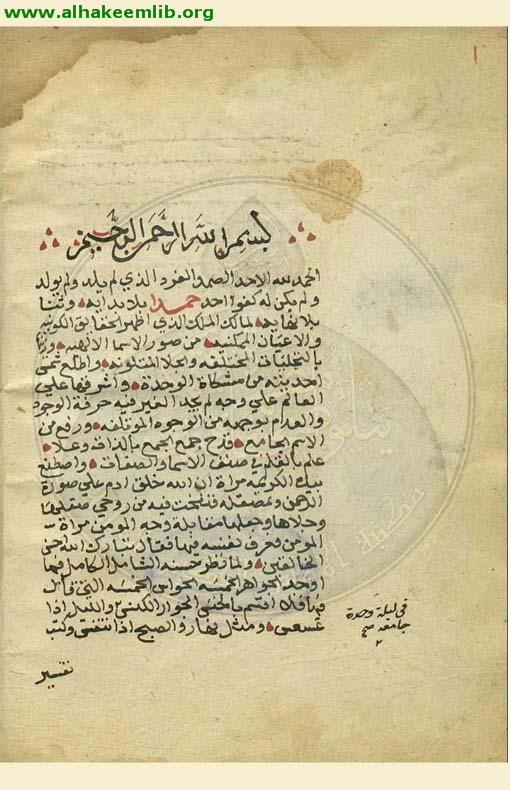 www.alhakeemlib.org
١
بسم الله الرحمن الرحيم
الحمد لله الاحد الصمد والفرد الذي لم يلد ولم يولد
ولم يكن له كفوا احد حمدا بلا بداية وثنا
بلا نهاية لمالك الملك الذي اظهر الحقايق الكونيه
والاعيان الممكنيه من صور الاسما الالهيه
بالتجليات المختلفه والجلا المتلونه واطلع شمس
احديته من مشكاة الوحدة واشرقها علي
العالم علي وجه لم يجد الغير فيه حرقة الوجود
والعدم بوجهه من الوجوه المؤتلفه ورفع من
الاسم الجامع قدح جمع الجمع بالذات وعلا
علم بالقلم في صنف الاسما والصفات واصطنع
بيده الكريمة مراة ان الله خلق ادم علي صورة
الرحمن ونفخت فيه من روحي
وجلاها وجعلها مقابلة وجه المومن مراة
المومن فعرف نفسه فيها فقال تبارك الله احسن
الخالقين ولما نظر حسنه الشامل الكامل فيها
اوجد الجواهر الخمسه الحواس الخمسه التي قال
فيها فلا اقسم بالخنس الجوار الكنس والليل اذا
عسعس والصبح اذا تنفس وكتب
في ليلة وحدة
جامعه صح
تفسير